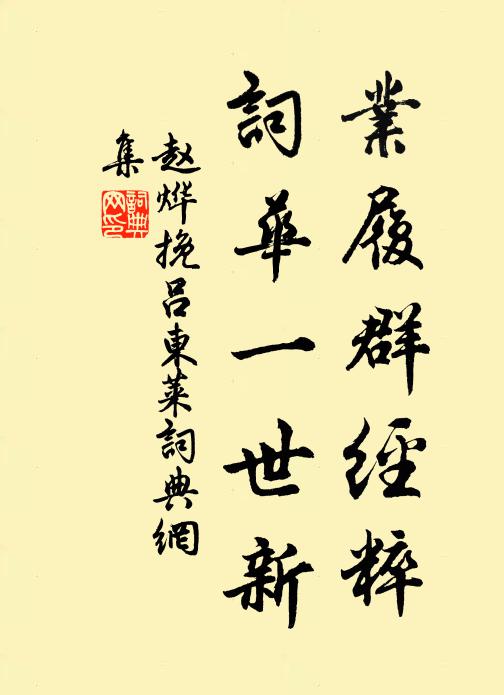 業履群經粹
詞華一世新
赵烨挽吕東萊詞典網
集
詞典
网印